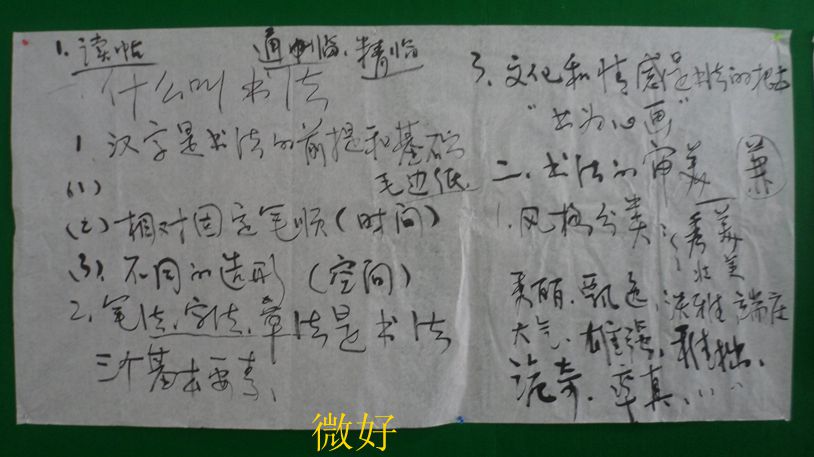 1. 读帖
通临、精临
一、什么叫书法
1. 汉字是书法的前提和基础
毛边纸
(1)
(2) 相对固定笔顺(时间)
(3). 不同的造形(空间)
2. 笔法、字法、章法是书法
三个基本要素、
3、文化和情感是书法的
"书为心画"
二、书法的审美
1. 风格分类:
秀美
壮美
秀丽、飘逸、淡雅、端庄
大气、雄强、稚拙、
诡奇、率真、……
微好